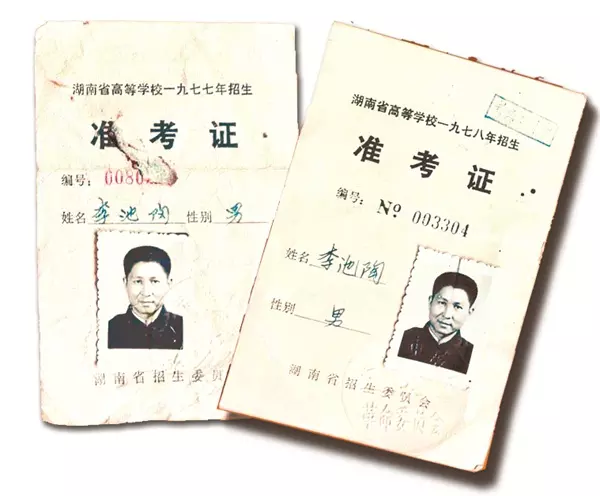 湖南省高等学校一九七七年招生
准考证
编号: 0080
姓名 李池陶 性别 男
湖南省招生委员
湖南省高等学校一九七八年招生
准考证
编号: № 003304
姓名 李池陶
性别 男
湖南省招生委员会